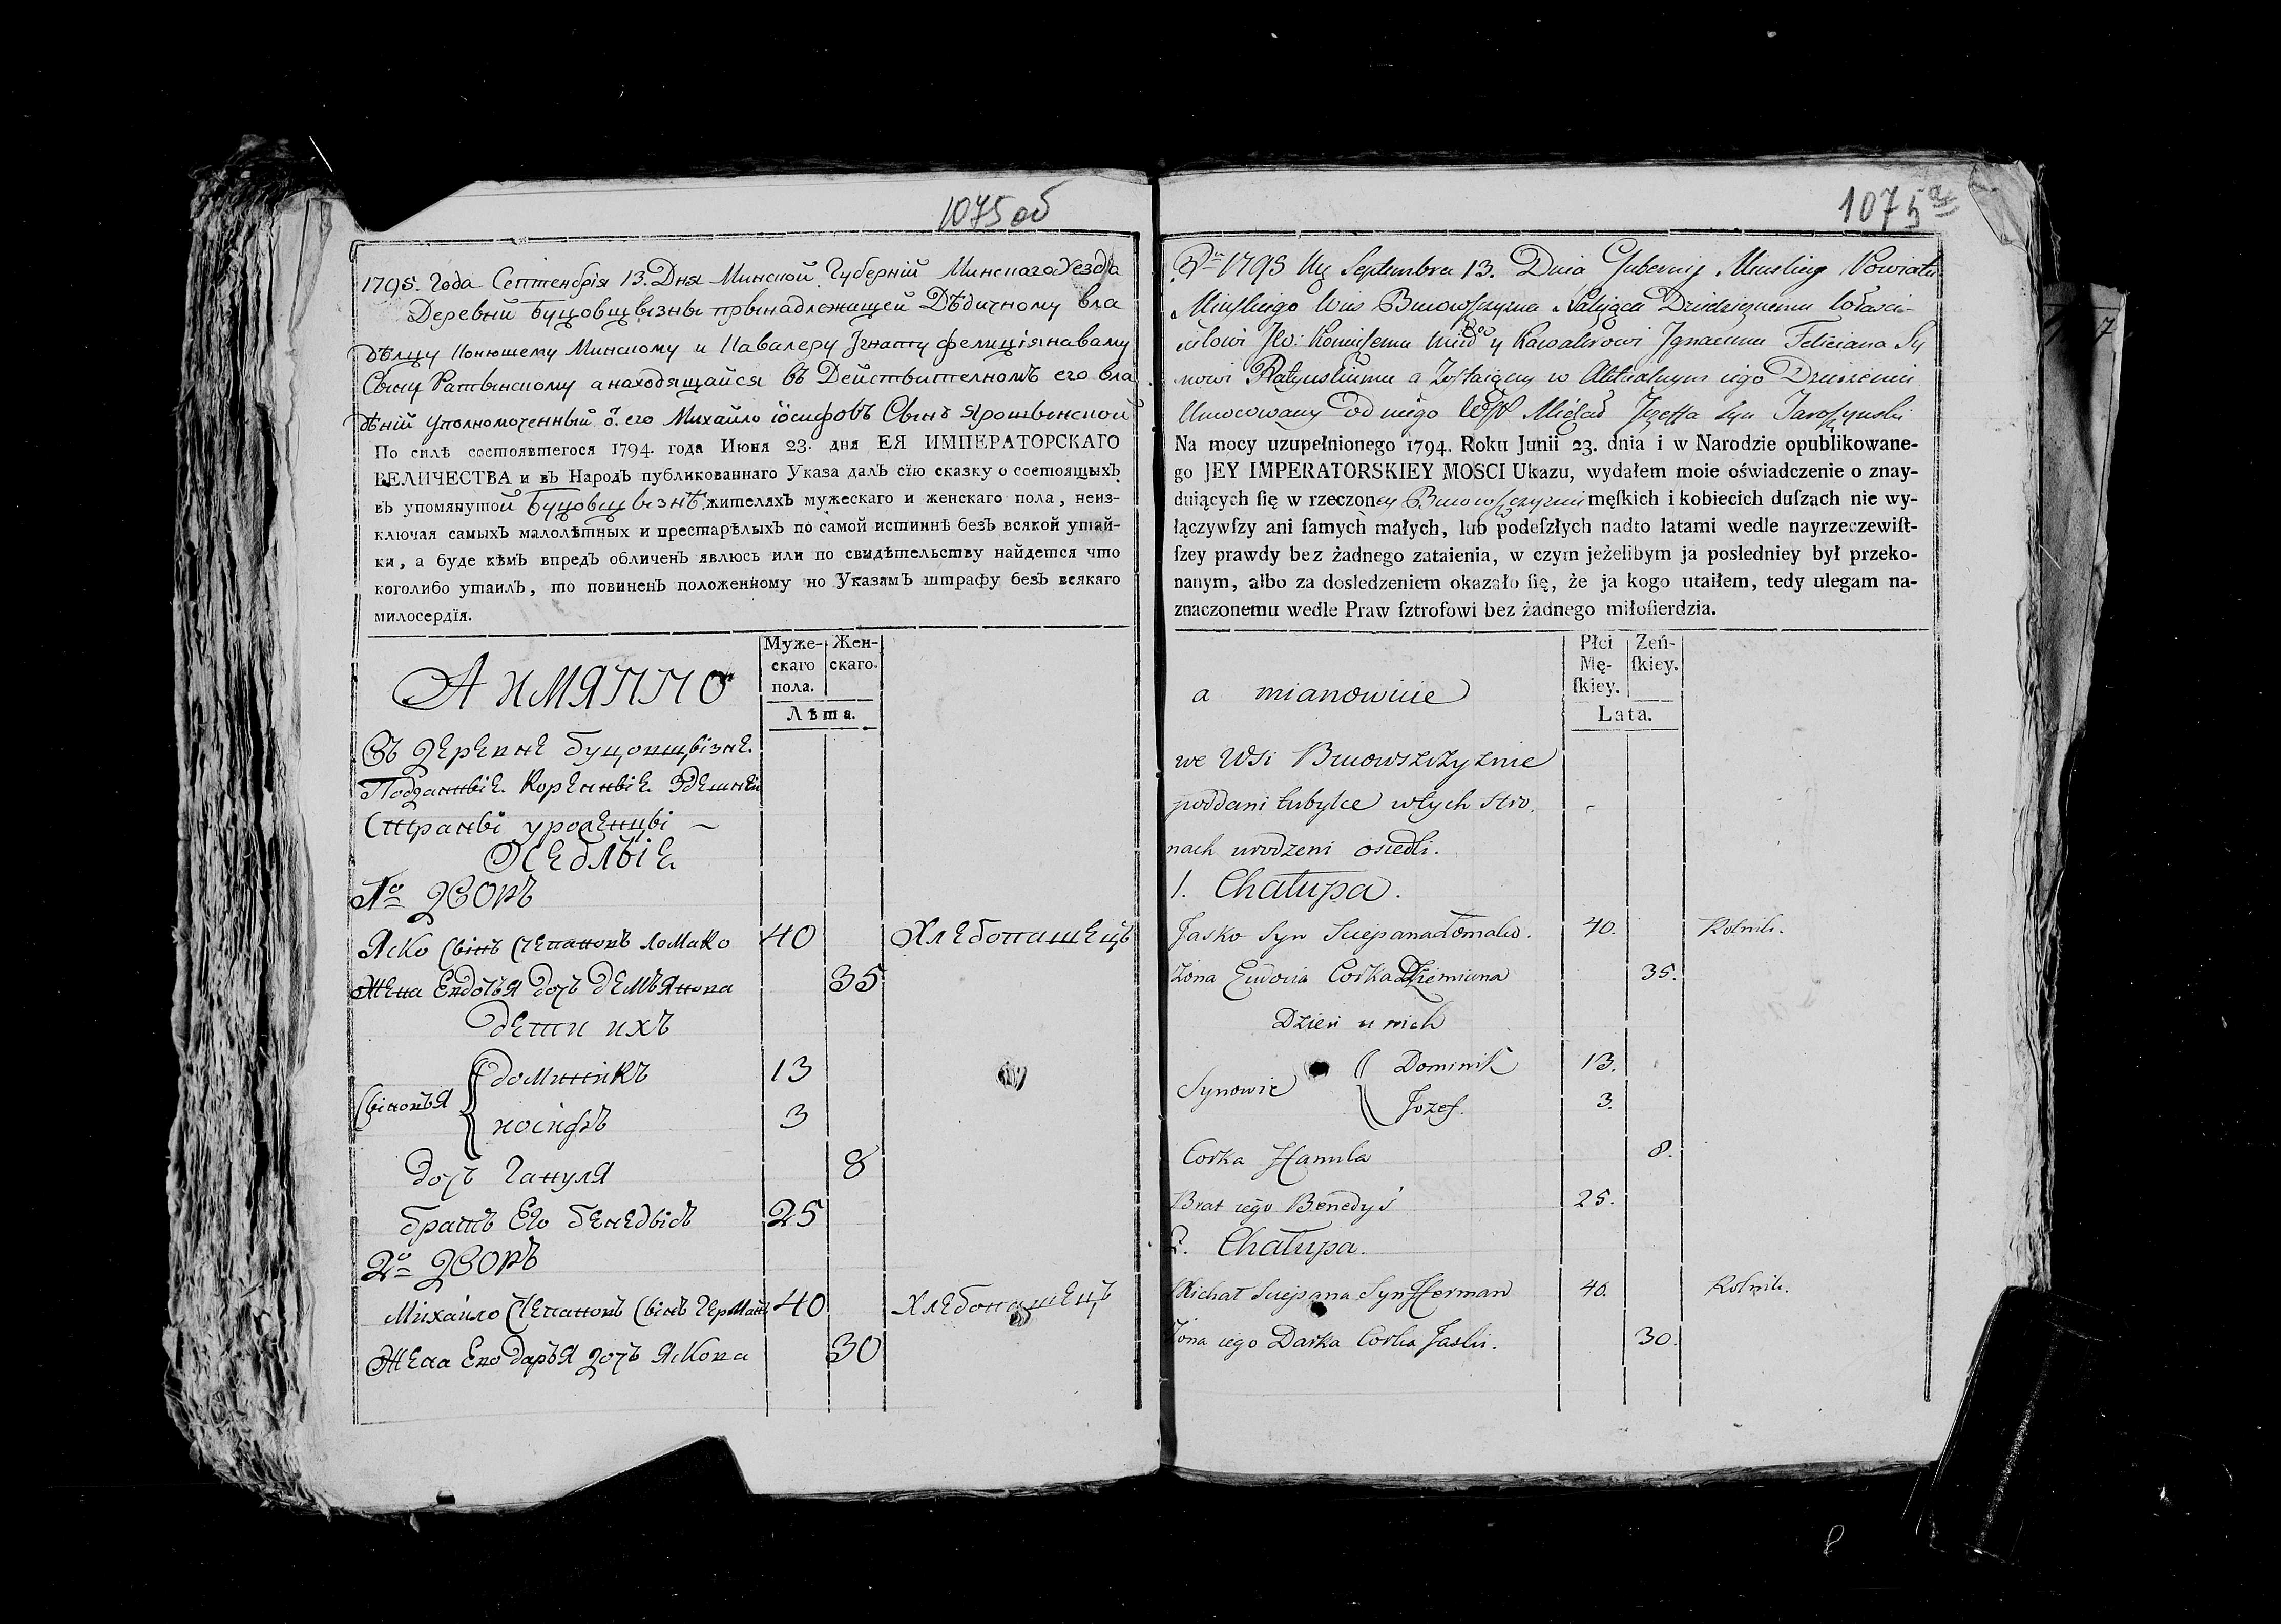 1075 об
1795. Года Септенбрія 13. Дня Минской Губерній Минскаго Уезда
Деревній Буцовщвізны прынадлежищей Дѣдичному вла
дѣлцу Конюшему Минскому и Кавалеру Ігнату фелиціянавому
Свыну Ратвінскому анаходящайся въ Действителномъ его вла
дѣній уполномоченный о͠ его Михайло іосифовъ Свынъ Ярошвінской
По силѣ состоявшегося 1794. года Июня 23. дня ЕЯ ИМПЕРАТОРСКАГО
ВЕЛИЧЕСТВА и въ Народъ публикованнаго Указа далъ сїю сказку о состоящыхъ
въ упомянутой Буцовщвізнѣ жителяхъ мужескаго и женскаго пола, неиз-
ключая самыхъ малолѣтных и престарѣлыхъ по самой истиннѣ безъ всякой утай-
ки, а буде кѣмъ впредъ обличенъ явлюсь или по свидѣтельству найдется что
коголибо утаилъ, то повиненъ положенному по Указамъ штрафу безъ всякаго
милосердїя.
Муже-
скаго
пола.
Жен-
скаго.
Лѣта.
А имянно
Въ деревне буцовщвізне.
Подданныіе Коренныіе Здешней
Страныі уроденцыі
Оседлыіе
1о дворъ
Яско Свінъ Степановъ Ломако 40 Хлебопашецъ
Жена Евдотья дочъ демъянова 35
дети ихъ
Свіновья
доминикъ 13
иосіфъ 3
дочъ Гануля 8
братъ Его бенедысь 25
2о дворъ
Михайло Степановъ Свінъ Германъ 40 Хлебопашецъ
Жена Ево даръя дочъ Яскова 30
1075 а
Rku 1795 Mca Septembra 13. Dnia Gubernij Minskiey Powiatu
Minskiego Wies Bucowszczyzna Należąca Dziedzicznemu Własci-
cielowi JW: Koniuszemu Mińo y Kawalerowi Ignacemu Feliciana Sy
nowi Ratynskiemu a Zostaiącey w Aktualnym iego Dzierzeniu
Umocowany od niego WJP Michał Jozeffa Syn Jaroszynski
Na mocy uzupełnionego 1794. Roku Junii 23. dnia i w Narodzie opublikowane-
go JEY IMPERATORSKIEY MOSCI Ukazu, wydałem moie oświadczenie o znay-
duiących ſię w rzeczoney Bucowszczyznie męſkich i kobiecich duſzach nie wy-
łączywſzy ani ſamych małych, lub podeſzłych nadto latami wedle nayrzeczewiſt-
ſzey prawdy bez żadnego zataienia, w czym jeżelibym ja posledniey był przeko-
nanym, albo za dosledzeniem okazało ſię, że ja kogo utaiłem, tedy ulegam na-
znaczonemu wedle Praw ſztrofowi bez żadnego miłoſierdzia.
Płci
Mę-
ſkiey.
Zeń-
ſkiey.
Lata.
a mianowicie
we Wsi Bucowszczyznie
poddani tubylce w tych Stro.
nach urodzeni osiedli.
1. Chałupa.
Jasko Syn Sciepana Łomako. 40. Rolnik.
Zona Eudocia Corka Dziemiana 35.
Dzieci u nich
Synowie
Dominik 13.
Jozef. 3.
Corka Hanula 8.
Brat iego Benedyś 25.
2. Chałupa.
Michał Sciepana Syn Herman 40. Rolnik.
Zona iego Darka Corka Jaśki. 30.